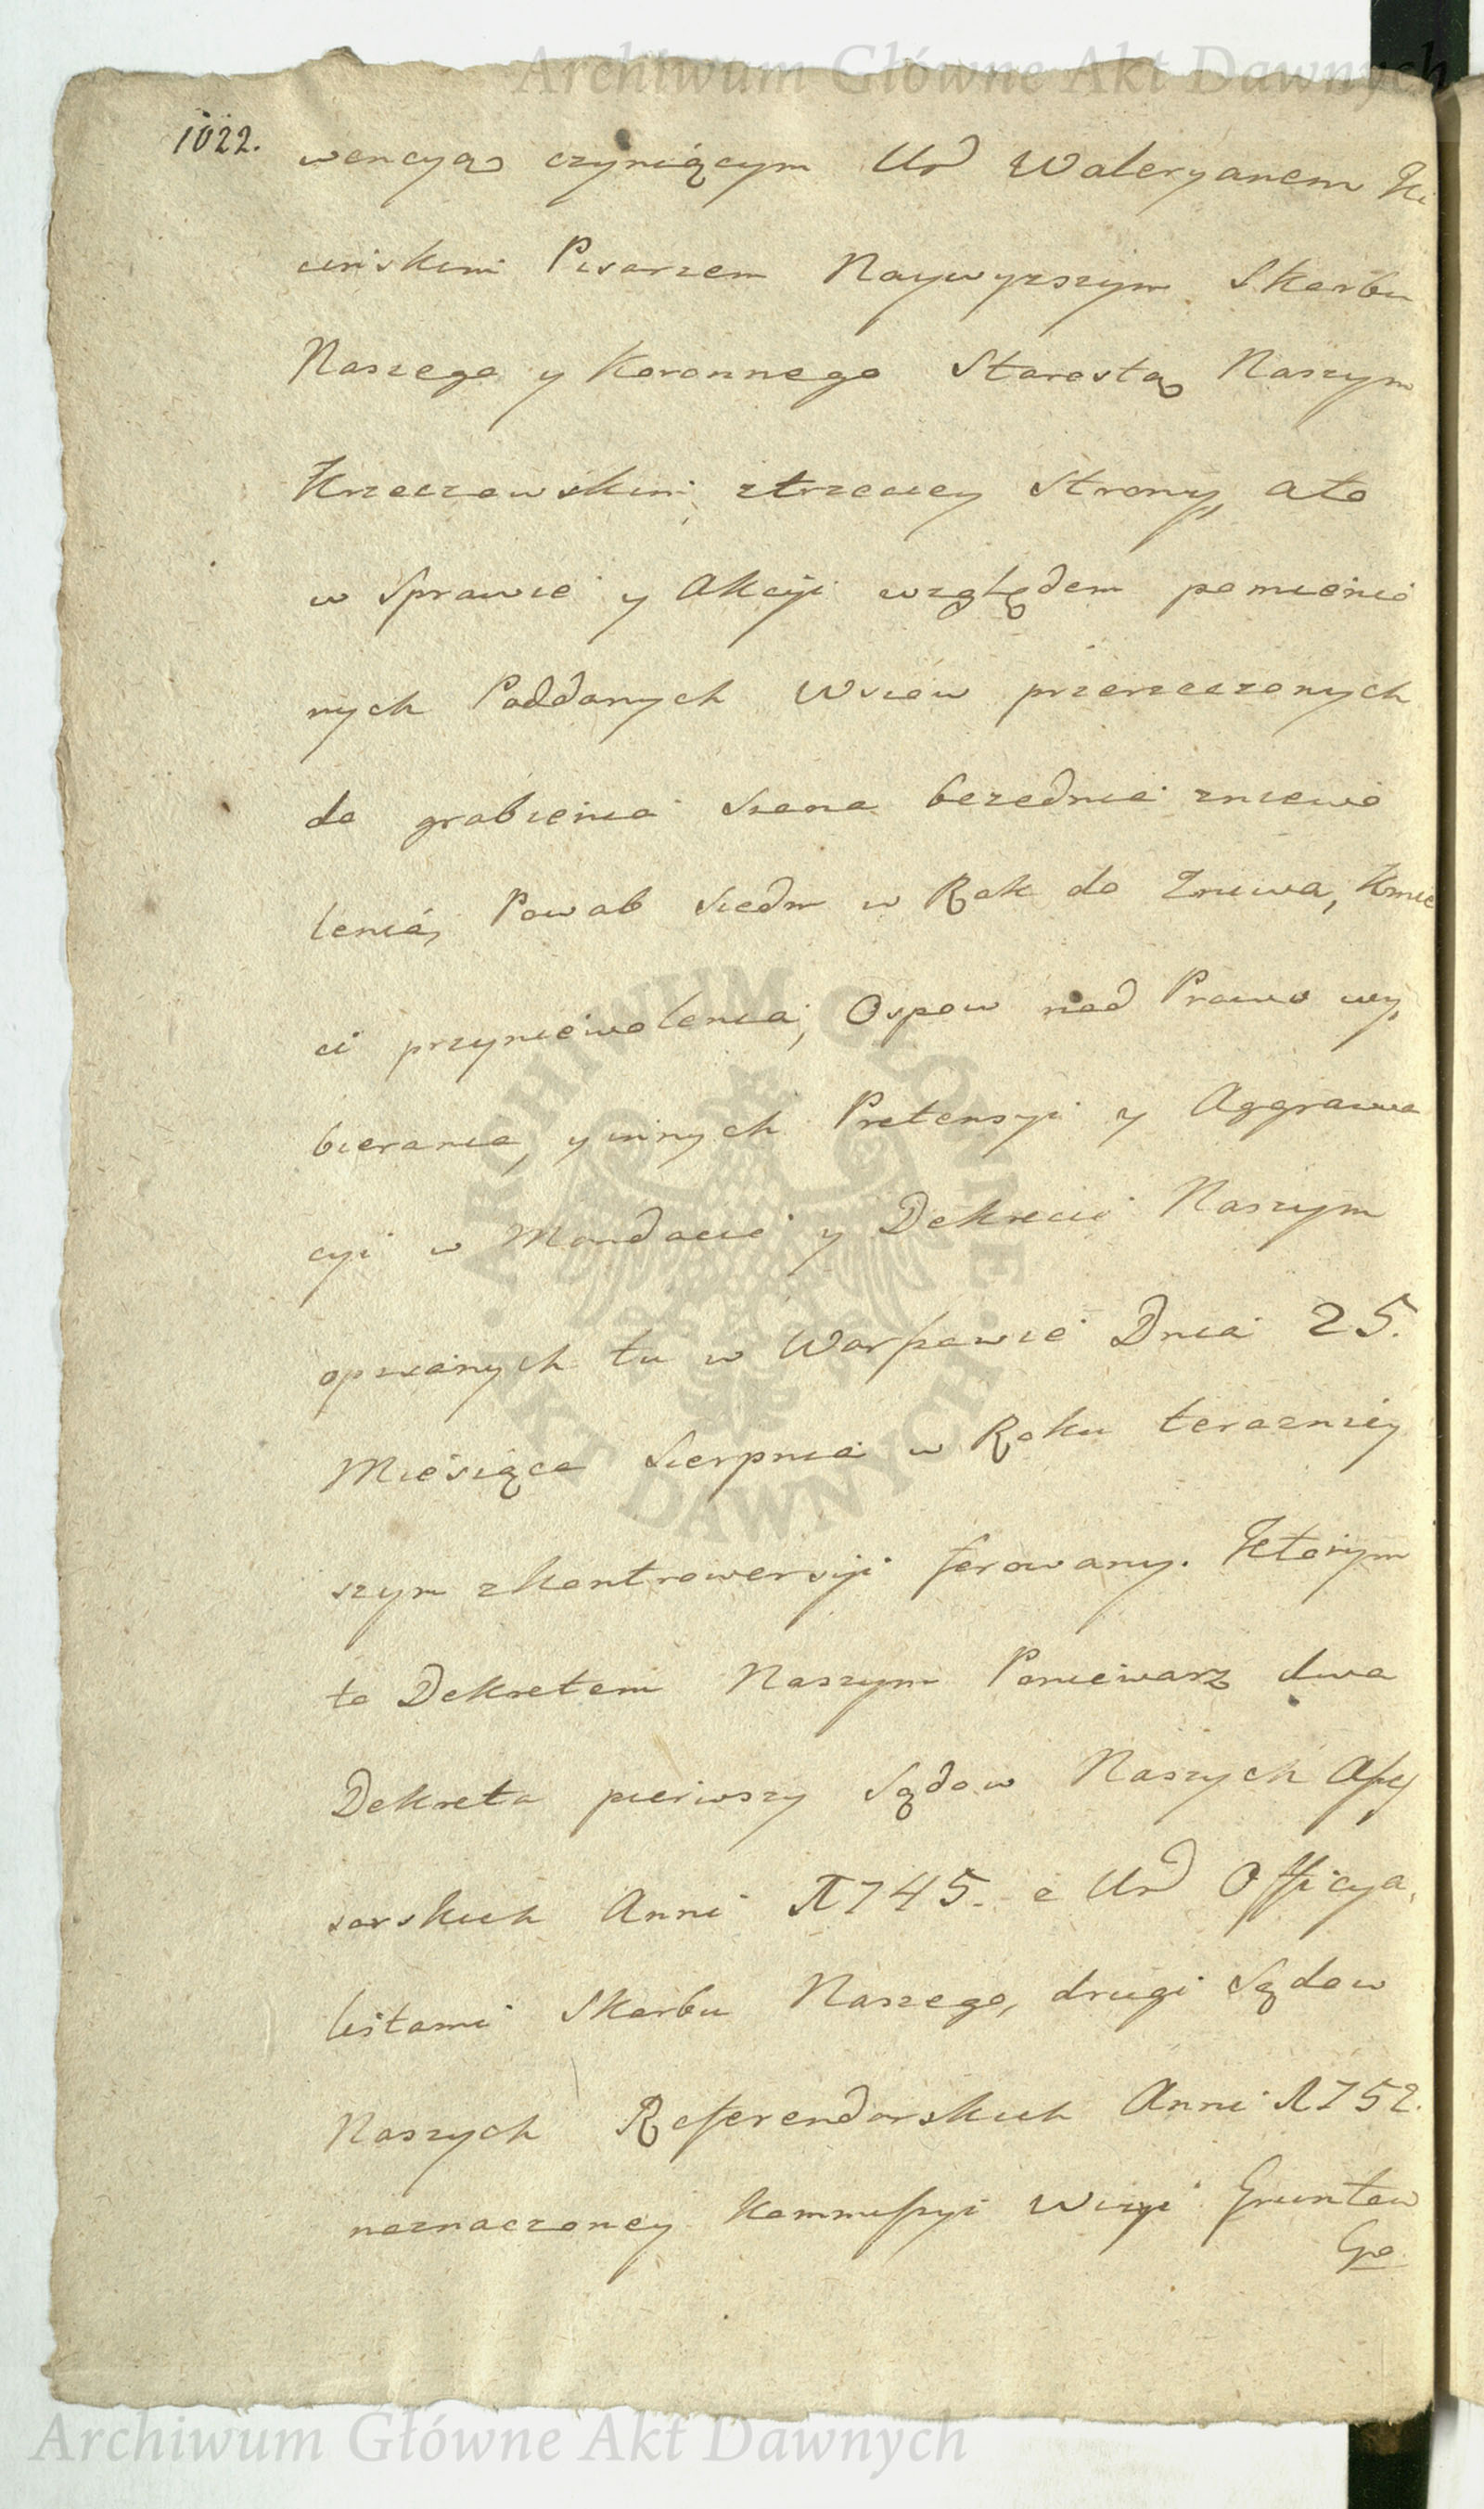 Archiwum Główne Akt Dawnych
1022.
wencyą czyniącym Ur Waleryanem Ki
cinskim Pisarzem Naywyzszym Skarbu
Naszego y Koronnego Starostą Naszym
Krzeczowskim ztrzeciey Strony, ato
w Sprawie y Akcyi względem pomienio
nych Poddanych Wsiow przerzeczonych
do grabienia Siana bezednia zniewo
lenia, Powab Siedm w Rok do Zniwa, Kmie
ci przyniewolenia, Ospow nad Prawo wy,
bierania, y innych Pretensyi y Aggrawa
cyi w Mandacie y Dekrecie Naszym
opisanych tu w Warszawie Dnia 25.
Miesiąca Sierpnia w Roku terazniey
szym zkontrowersyi ferowany. Ktorym
to Dekretem Naszym Poniewarz dwa
Dekreta pierwszy Sądow Naszych Assy
sorskich Anni 1745. a Ur Officya,
listami Skarbu Naszego, drugi Sądow
Naszych Referendarskich Anni 1752.
naznaczoney Kommissyi Wizyi Gruntow
Go
ARCHIWUM GŁÓWNE AKT DAWNYCH
Archiwum Główne Akt Dawnych